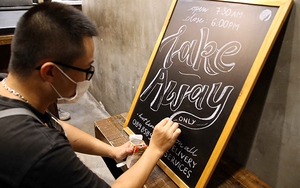 open 7:00AM
close 6:00PM
Take
Away
ONLY
DELIVERY
SERVICES